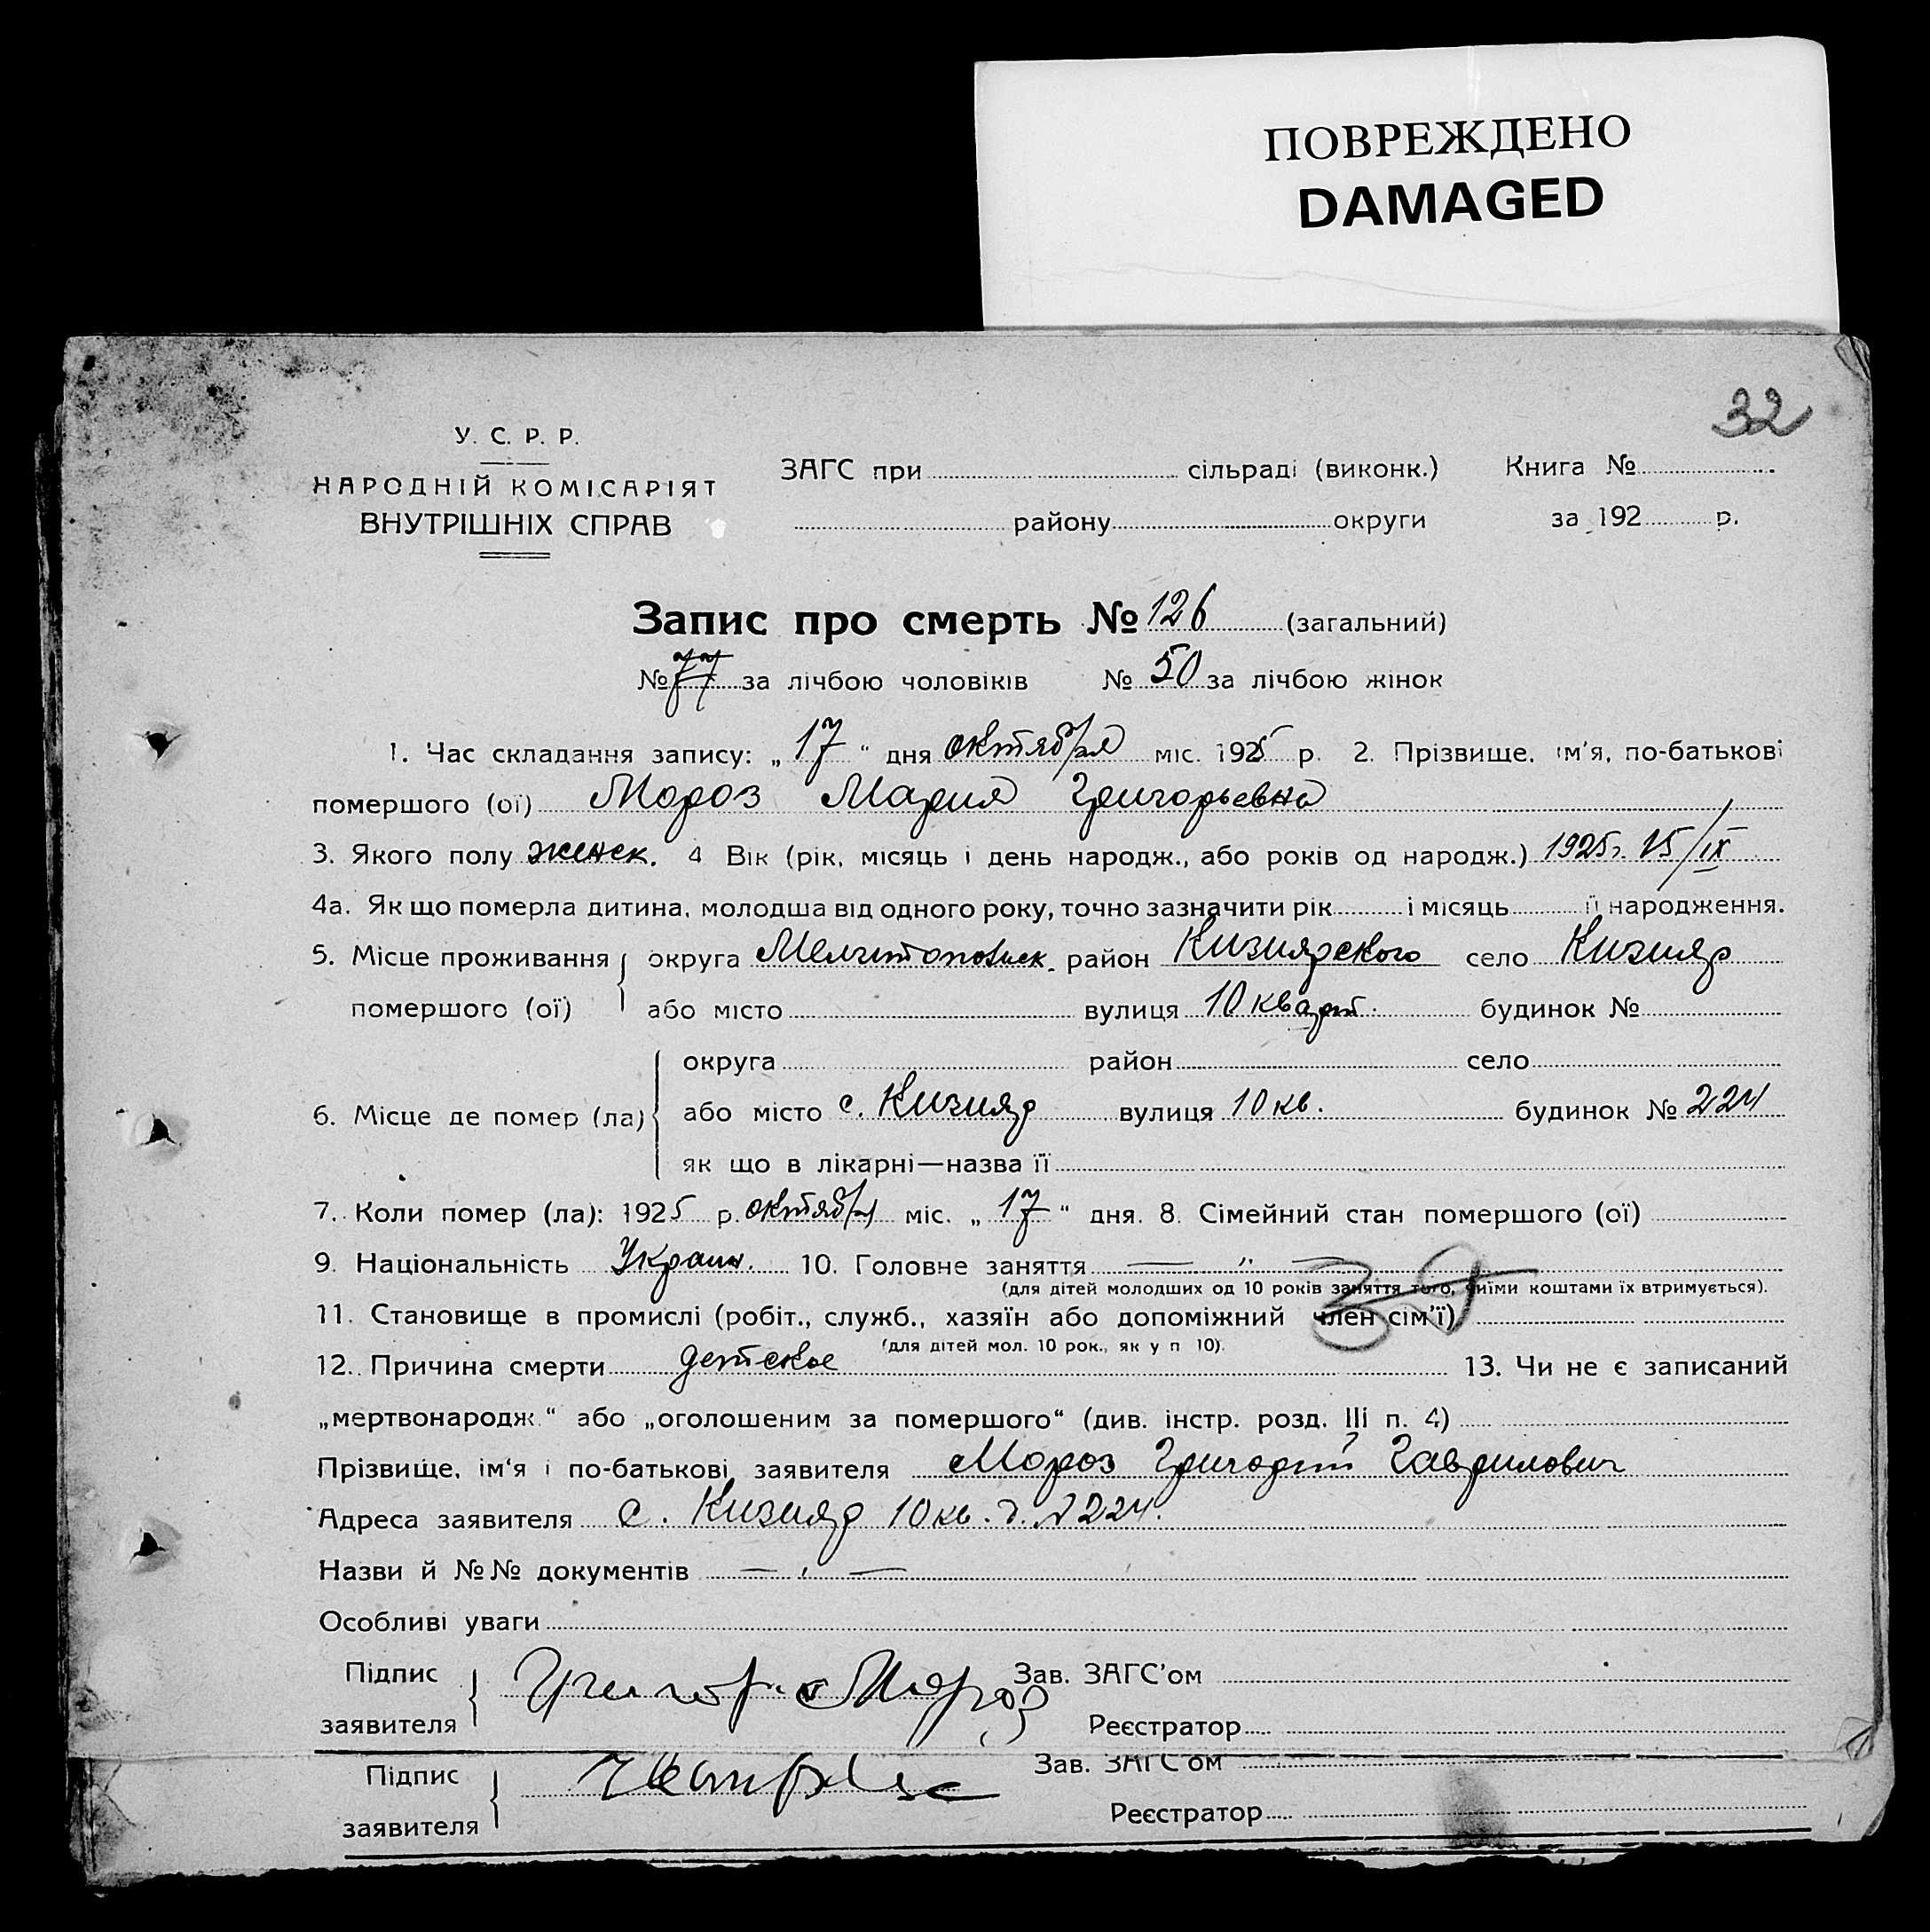 ПОВРЕЖДЕНО
DAMAGED
32
У. С. Р. Р.
НАРОДНІЙ КОМІСАРІЯТ
ВНУТРІШНІХ СПРАВ
ЗАГС при сільраді (виконк.) Книга №
району округи за 192 р.
Запис про смерть № 126 (загальний)
№ 77 за лічбою чоловіків № 50 за лічбою жінок
1. Час складання запису: „17" дня октября міс. 1925 р. 2. Прізвище, ім'я, по-батькові
помершого (ої) Мороз Мария Григорьевна
3. Якого полу женск. 4 Вік (рік, місяць і день народж., або років од народж.) 1925г. 15/IX
4а. Як що померла дитина, молодша від одного року, точно зазначити рік і місяць її народження.
5. Місце проживання округа Мелитопольск. район Кизиярского село Кизияр
помершого (ої) або місто вулиця 10 кварт. будинок №
округа район село
6. Місце де помер (ла) або місто с. Кизияр вулиця 10 кв. будинок № 224
як що в лікарні—назва її
7. Коли помер (ла): 1925 р. октября міс. „17" дня. 8. Сімейний стан помершого (ої)
9. Національність Украин. 10. Головне заняття — " —
(для дітей молодших од 10 років заняття того, чиїми коштами їх втримується).
11. Становище в промислі (робіт., служб., хазяїн або допоміжний член сім'ї)
(для дітей мол. 10 рок., як у п 10).
12. Причина смерти детское 13. Чи не є записаний
„мертвонародж." або „оголошеним за помершого" (див. інстр. розд. III п. 4)
Прізвище, ім'я і по-батькові заявителя Мороз Григорий Гаврилович
Адреса заявителя с. Кизияр 10 кв. д. № 224.
Назви й №№ документів — " —
Особливі уваги
Підпис Григор. Мороз Зав. ЗАГС'ом
заявителя Реєстратор
Підпис Зав. ЗАГС'ом
заявителя Реєстратор